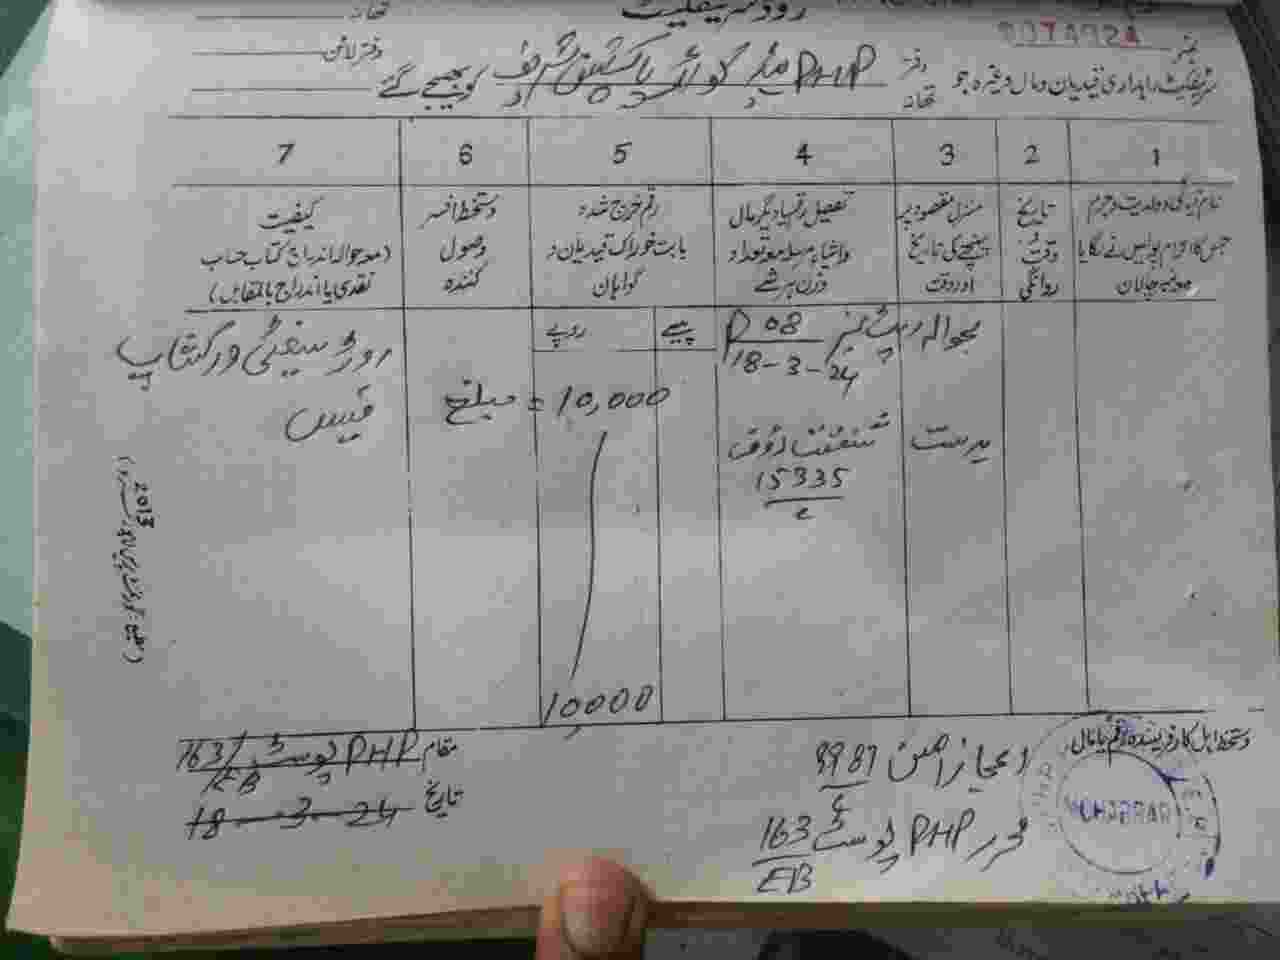 روڈ سرٹیفکیٹ
تھانہ
نمبر
دفتر لائن
سرٹیفکیٹ راہداری قیدیان و مال وغیرہ جو
دفتر
تھانہ
PHP ہیڈ کوارٹر پاکپتن شریف
کو بھیجے گئے
1 2 3 4 5 6 7
نام قیدی ولدیت و جرم
جس کا الزام پولیس نے لگایا
تاریخ
وقت
روانگی
منزل مقصود پر
پہنچنے کی تاریخ
اور وقت
تفصیل رقم یا دیگر مال
و اشیاء مرسلہ معہ تعداد
وزن ہر شے
رقم خرچ شدہ
بابت خوراک قیدیان و
گواہان
دستخط افسر
وصول
کنندہ
کیفیت
(معہ حوالہ اندراج کتاب حساب
نقدی یا اندراج بالمقابل)
روپے
پیسے
بحوالہ رپٹ نمبر 08
18-3-24
روڈ سیفٹی ورکشاپ
فیس
مبلغ = 10,000
بدست
15335
10000
2013
مقام PHP پوسٹ 163/EB
تاریخ 18-3-24
دستخط اہل کار فرستندہ رقم یا مال
اعجاز امین 9987
محرر PHP پوسٹ 163
EB
MOHARRAR